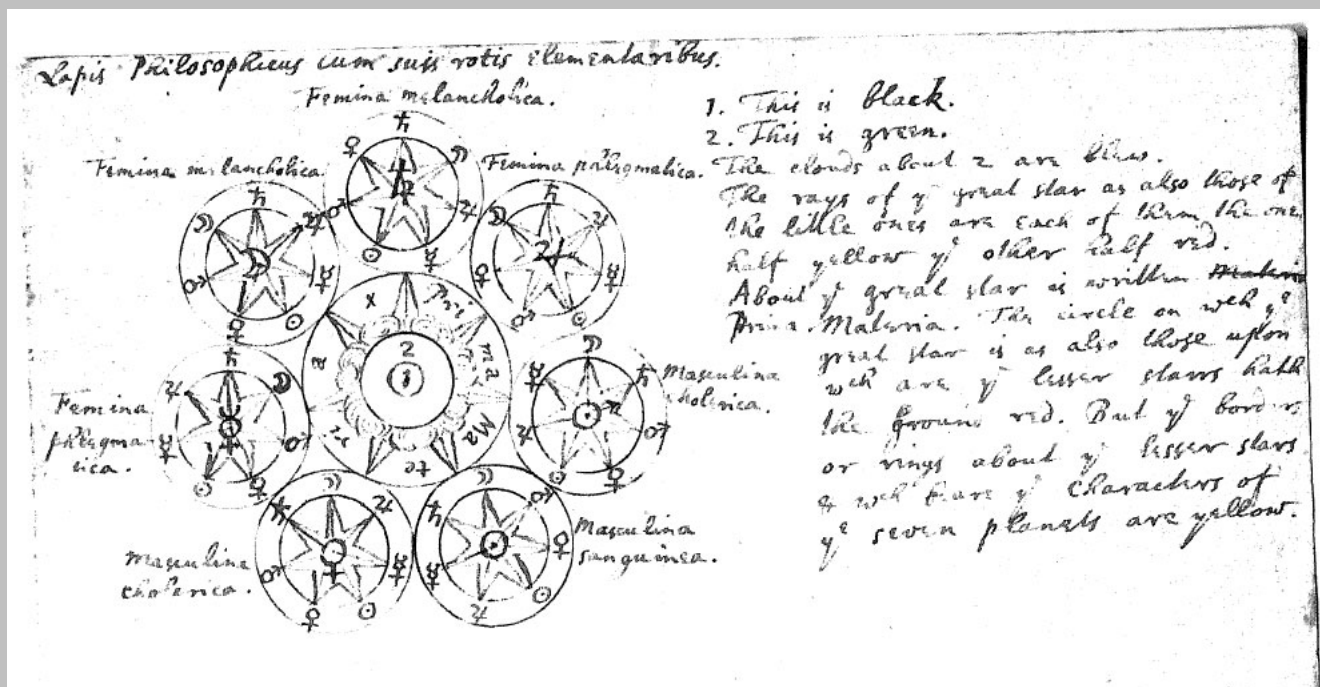 Lapis Philosophicus cum suis rotis Elementaribus.
Femina melancholica.
Femina melancholica.
Femina phlegmatica.
Femina
phlegma
tica.
Masculina
cholerica.
Masculina
cholerica.
Masculina
sanguinea.
Pri
ma
Ma
te
ri
a
X
2
1
1. This is black.
2. This is green.
The clouds about 2 are blew.
The rays of yᵉ great star as also those of
the little ones are each of them the one
half yellow yᵉ other half red.
About yᵉ great star is written Materia
Prima Materia. The circle on wᶜʰ yᵉ
great star is as also those upon
wᶜʰ are yᵉ lesser starrs hath
the ground red. But yᵉ borders
or rings about yᵉ lesser stars
& wᶜʰ beare yᵉ characters of
yᵉ seven planets are yellow.